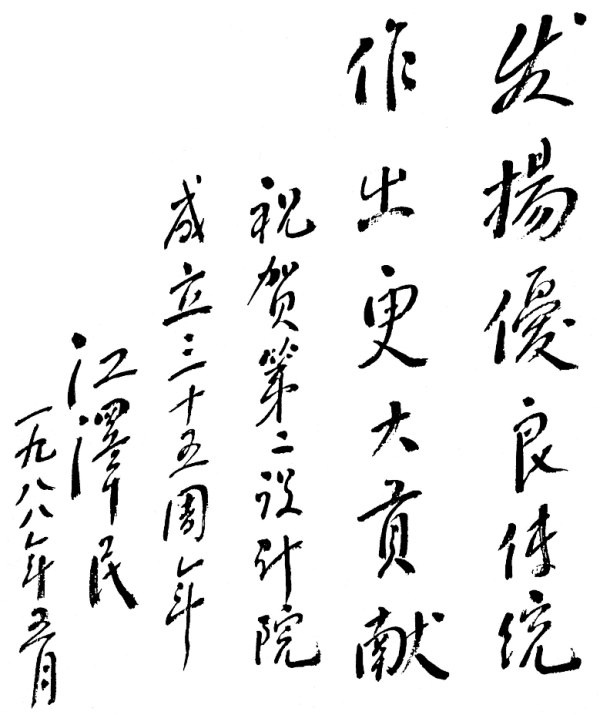 发揚優良传统
作出更大贡献
祝贺第二设计院
成立三十五周年
江澤民
一九八八年五月